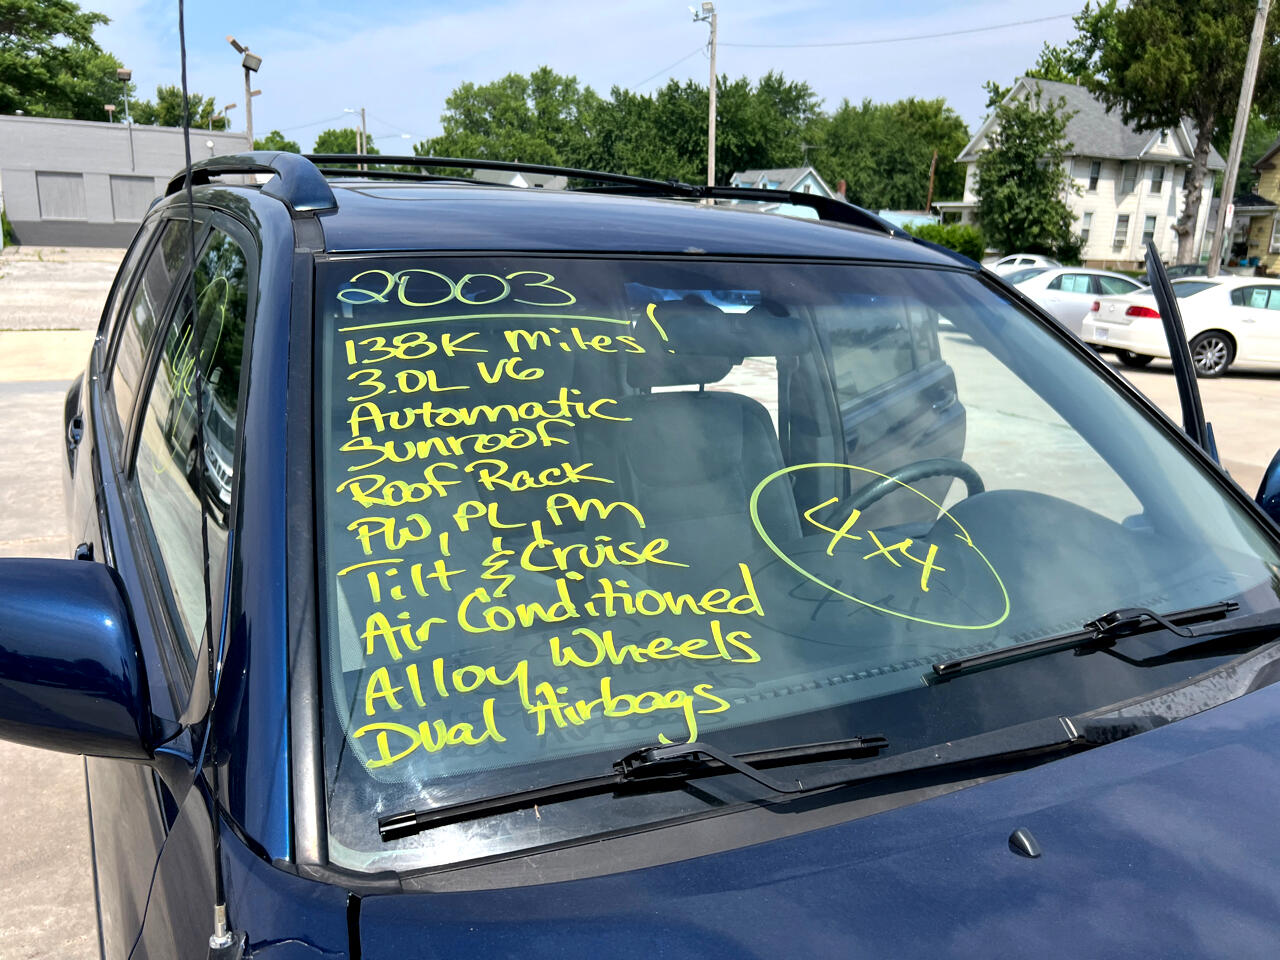 2003
138K miles!
3.0L V6
Automatic
Sunroof
Roof Rack
PW, PL, PM
Tilt & Cruise
Air Conditioned
Alloy Wheels
Dual Airbags
4x4